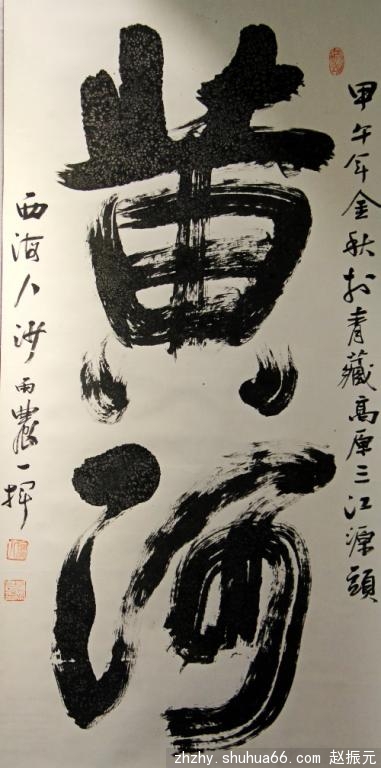 甲午年金秋於青藏高原三江源頭
黄河
西海人沙雨農一揮
zhzhy.shuhua66.com 赵振元